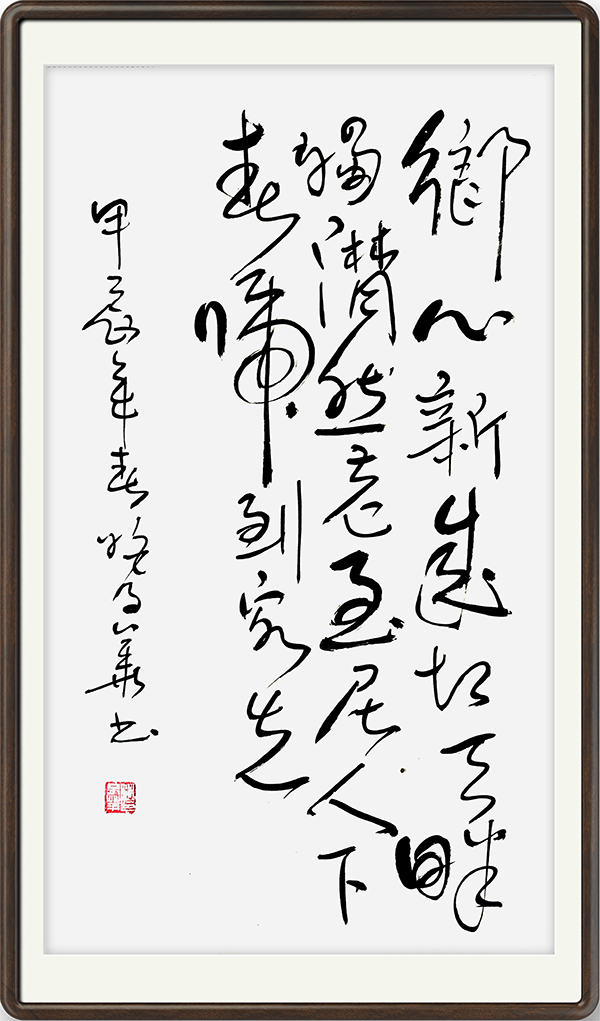 鄉心新歲切天畔
獨潸然老至居人下
春歸到客先
甲辰年春華书